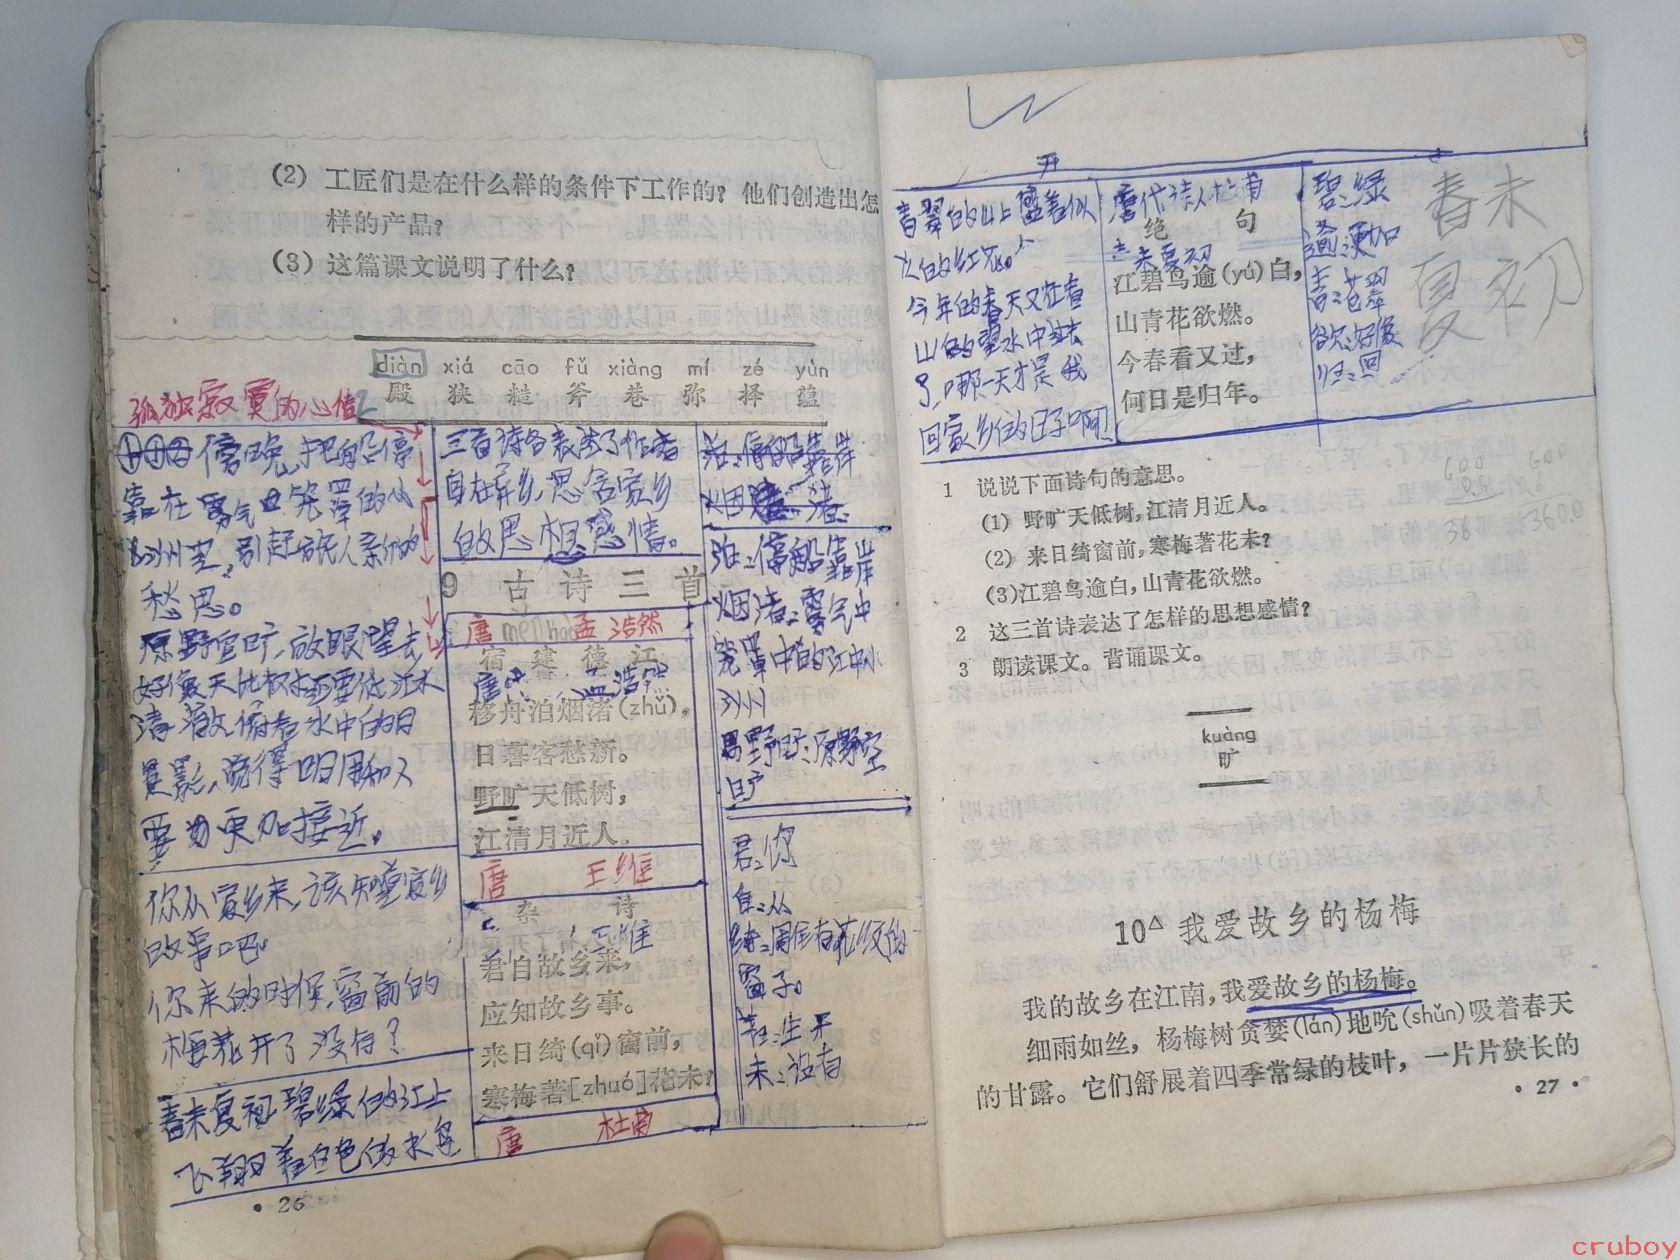 (2) 工匠们是在什么样的条件下工作的？他们创造出怎
样的产品？
(3) 这篇课文说明了什么？
diàn xiá cāo fǔ xiàng mí zé yùn
殿 狭 糙 斧 巷 弥 择 蕴
孤独寂寞的心情
傍晚，把船停
靠在雾气笼罩的小
洲边，引起旅人新的
愁思。
原野空旷，放眼望去
好像天比树还要低江水
清澈俯看水中的月
更加接近。
你从家乡来，该知道家乡
故事吧
你来的时候，窗前的
梅花开了没有？
春末夏初碧绿的江上
飞翔着白色的水鸟
三首诗各表达了作者
身在异乡，思念家乡
的思想感情。
9 古诗三首
唐 孟浩然
宿建德江
唐 孟浩然
移舟泊烟渚(zhǔ)，
日暮客愁新。
野旷天低树，
江清月近人。
唐 王维
杂 诗
王维
君自故乡来，
应知故乡事。
来日绮(qǐ)窗前，
寒梅著[zhuó]花未？
唐 杜甫
泊：停船靠岸
泊：停船靠岸
烟渚：雾气中
笼罩中的江中小
洲
野旷：原野空
旷
君：你
自：从
绮：周围有花纹的
窗子。
未：没有
• 26
开
青翠的山上盛着似
火的红花
今年的春天又在青
山的翠水中过去
了，哪一天才是我
回家乡的日子啊！
唐代诗人杜甫
绝 句
春末夏初
江碧鸟逾(yú)白，
山青花欲燃。
今春看又过，
何日是归年。
碧：绿
逾：更加
青：苍翠
欲：好像
归：回
春末
夏初
1 说说下面诗句的意思。
(1) 野旷天低树，江清月近人。
(2) 来日绮窗前，寒梅著花未？
(3)江碧鸟逾白，山青花欲燃。
2 这三首诗表达了怎样的思想感情？
3 朗读课文。背诵课文。
600
0.6
360.0
kuàng
旷
10△ 我爱故乡的杨梅
我的故乡在江南，我爱故乡的杨梅。
细雨如丝，杨梅树贪婪(lán)地吮(shǔn)吸着春天
的甘露。它们舒展着四季常绿的枝叶，一片片狭长的
• 27 •
cruboy